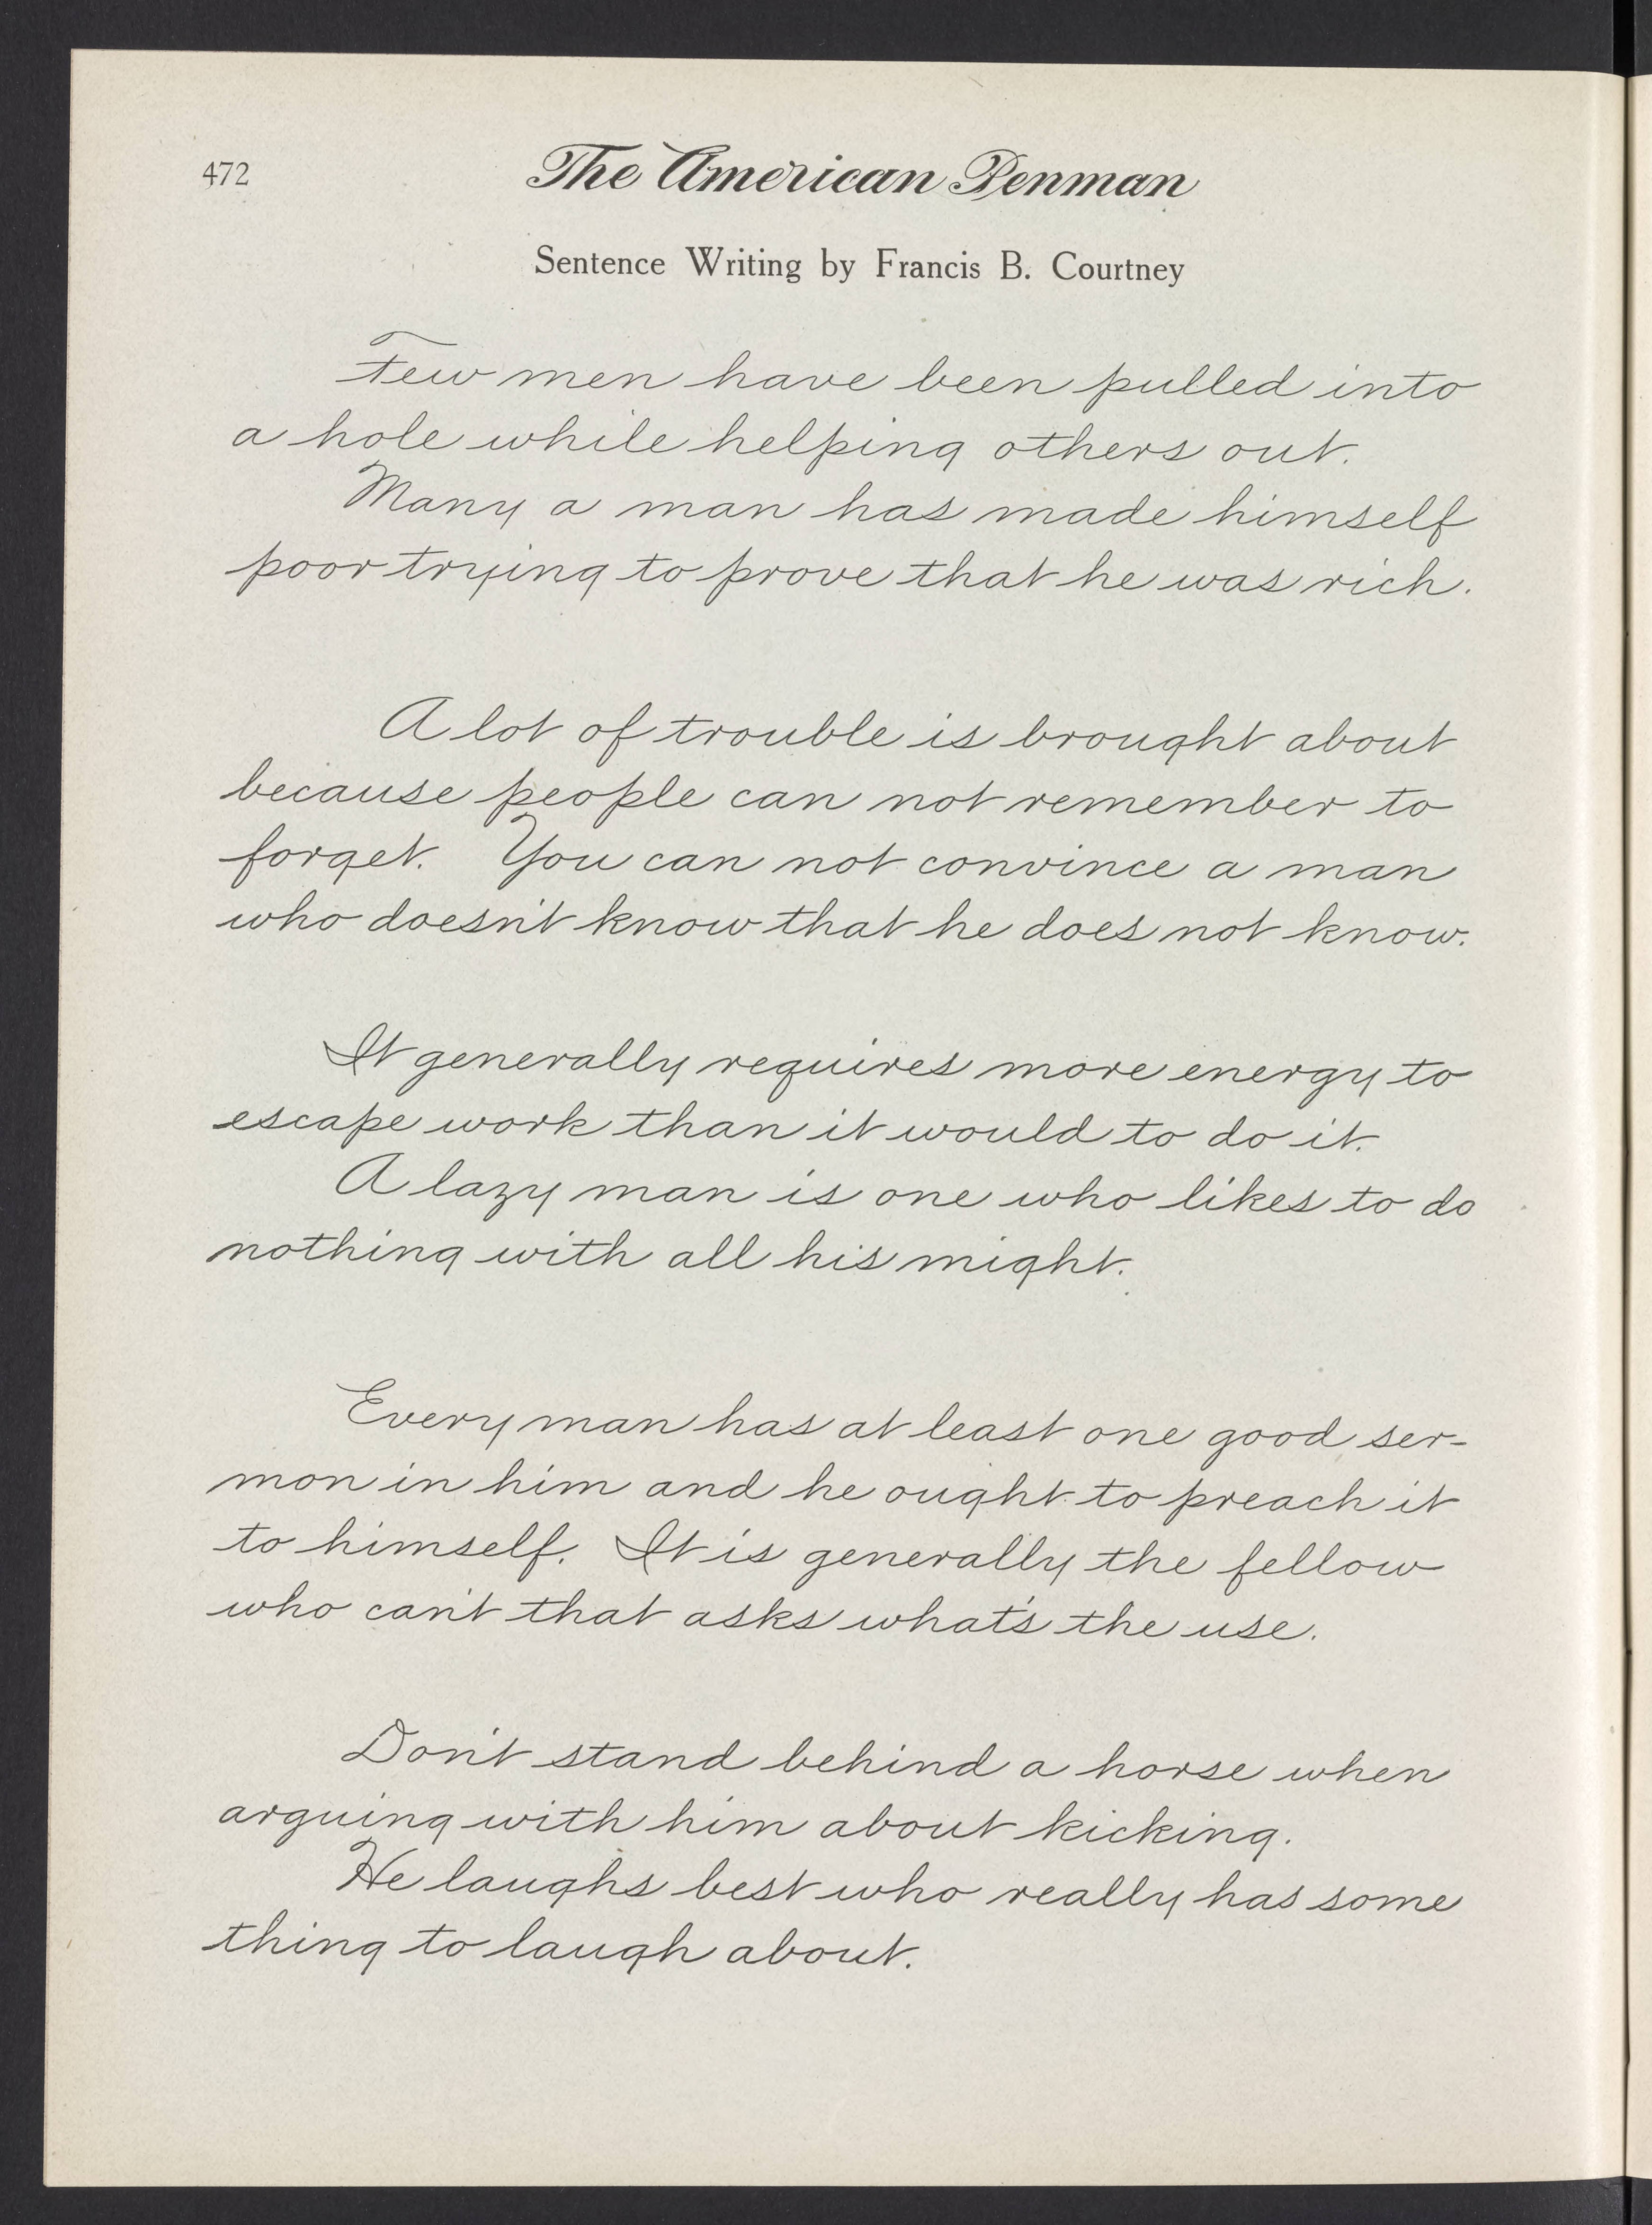 472
The American Penman
Sentence Writing by Francis B. Courtney
Few men have been pulled into
a hole while helping others out.
Many a man has made himself
poor trying to prove that he was rich.
A lot of trouble is brought about
because people can not remember to
forget. You can not convince a man
who doesn't know that he does not know.
It generally requires more energy to
escape work than it would to do it.
A lazy man is one who likes to do
nothing with all his might.
Every man has at least one good ser-
mon in him and he ought to preach it
to himself. It is generally the fellow
who can't that asks what's the use.
Don't stand behind a horse when
arguing with him about kicking.
He laughs best who really has some
thing to laugh about.